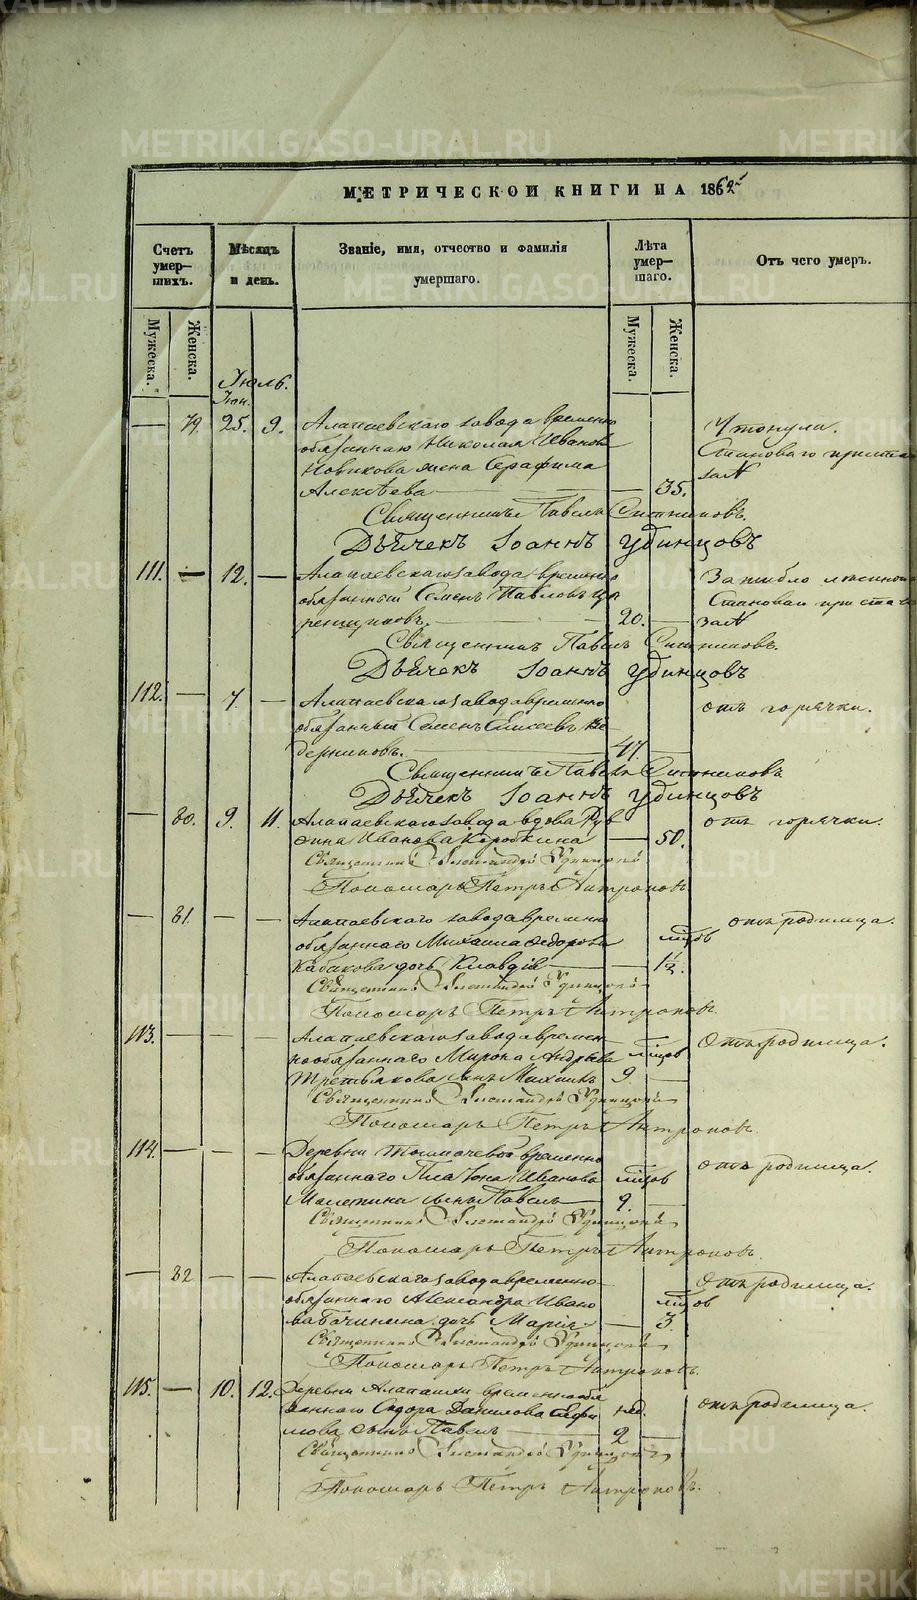 МЕТРИЧЕСКОЙ КНИГИ НА 1862
Счетъ умер-шихъ. Мѣсяцъ и день. Званіе, имя, отчество и фамилія умершаго. Лѣта умер-шаго. Отъ чего умеръ.
Мужеска. Женска. Мужеска. Женска.
Іюль.
Іюн.
— 79. 25. 9. Алапаевскаго завода временно Утонула.
обязаннаго Николая Иванова Становаго приста
Новикова жена Серафима за №
Алексѣева — — 35.
Священникъ Павелъ Ситниковъ.
Дьячекъ Іоаннъ Удинцовъ
111. — 12. — Алапаевскаго завода временно
обязанный Семенъ Павловъ
20. — за №
Священникъ Павелъ Ситниковъ.
Дьячекъ Іоаннъ Удинцовъ
112. — 7. — Алапаевскаго завода временно отъ горячки.
обязанный Семенъ Елисеевъ Ке
дерниковъ. — 47. —
Священникъ Павелъ Ситниковъ
Дьячекъ Іоаннъ Удинцовъ
— 80. 9. 11. Алапаевскаго завода вдова отъ горячки.
Иванова Коробкина — 50.
Священникъ Александръ Удинцовъ
Пономарь Петръ Антроповъ
— 81. — — Алапаевскаго завода временно отъ родимца.
обязаннаго Михаила Федорова мѣсяцов
Кабакова дочь Клавдія — — 1½.
Священникъ Александръ Удинцовъ
Пономарь Петръ Антроповъ.
113. — — — Алапаевскаго завода времен Отъ родимца.
нообязаннаго Мирона Андрѣева мѣсяцов
Третьякова сынъ Михаилъ 9. —
Священникъ Александръ Удинцовъ
Пономарь Петръ Антроповъ.
114. — — — Деревни Толмачевой временно отъ родимца.
обязаннаго Платона Иванова мѣсяцов
сынъ Павелъ — 9. —
Священникъ Александръ Удинцовъ
Пономарь Петръ Антроповъ.
— 82 — — Алапаевскаго завода временно Отъ родимца.
обязаннаго Александра Ивано мѣсяцов
ва дочь Марія — — 3.
Священникъ Александръ Удинцовъ
Пономарь Петръ Антроповъ.
115. — 10. 12. Деревни Алапаихи временнообя
заннаго Сидора Данилова Ефи нед. отъ родимца.
мова сынъ Павелъ — 2 —
Священникъ Александръ Удинцовъ
Пономарь Петръ Антроповъ.
METRIKI.GASO-URAL.RU